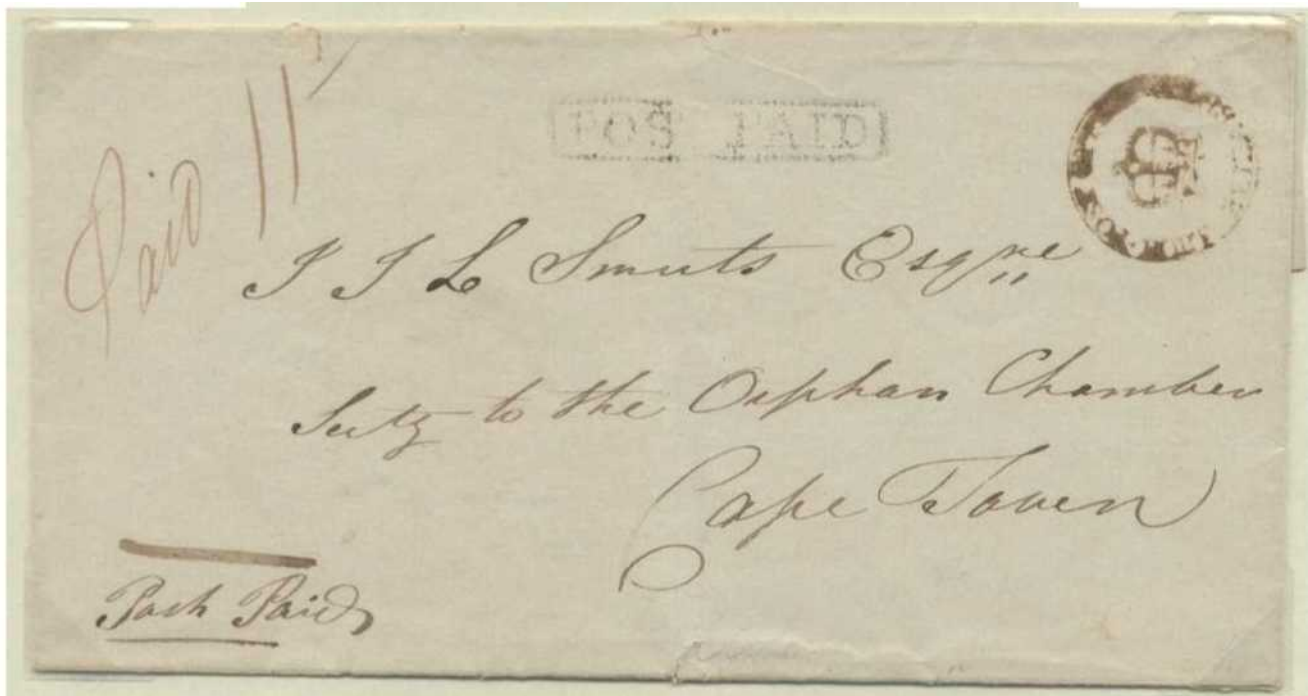 Paid 11
POS PAID
J J L Smuts Esqre
Secty to the Orphan Chamber
Cape Town
Post Paid